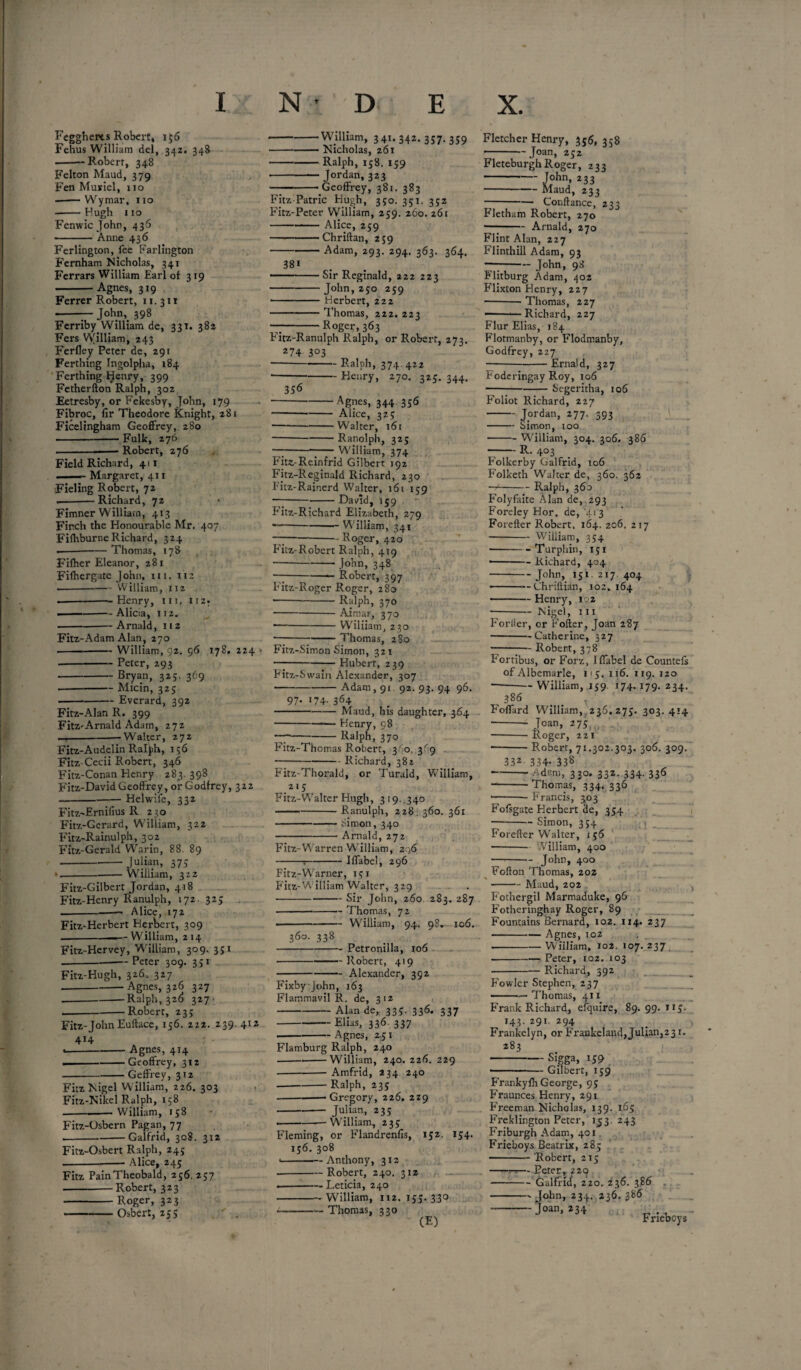 I N D E X.
Feggherts Robert, 156
Fehus William del, 342. 348
—— Robert, 348
Felton Maud, 379
Fen Muriel, 110
—— Wymar, 110
—— Hugh 110
Fenwic John, 436
—— Anne 436
Ferlington, see Farlington
Fernham Nicholas, 341
Ferrars William Earl of 319
—— Agnes, 319
Ferrer Robert, 11. 311
—— John, 398
Ferriby William de, 331. 382
Fers William, 243
Ferfley Peter de, 291
Ferthing Ingolpha, 184
Ferthing Henry, 399
Fetherston Ralph, 302
Eetresby, or Fekesby, John, 179
Fibroc, sir Theodore Knight, 281
Ficelingham Geoffrey, 280
—— Fulk, 276
—— Robert, 276
Field Richard, 411
—— Margaret, 411
Fieling Robert, 72
—— Richard, 72
Fimner William, 413
Finch the Honourable Mr. 407
Fishburne Richard, 324
—— Thomas, 178
Fisher Eleanor, 281
Fishergate John, 111. 112
—— William, 112
—— Henry, 111, 112.
—— Alicia, 112.
—— Arnald, 112
Fitz-Adam Alan, 270
—— William, 92. 96 178. 224
—— Peter, 293
—— Bryan, 325. 369
—— Micin, 325
—— Everard, 392
Fitz-Alan R. 399
Fitz-Arnald Adam, 272
—— Walter, 272
Fitz-Audelin Ralph, 156
Fitz Cecii Robert, 346
Fitz-Conan Henry 283. 398
Fitz-David Geoffrey, or Godfrey, 322
—— Helwise, 332
Fitz-Ernisius R 230
Fitz-Gerard, William, 322
Fitz-Rainulph, 302
Fitz-Gerald Warin, 88. 89
—— Julian, 375
—— William, 322
Fitz-Gilbert Jordan, 418
Fitz-Henry Ranulph, 172. 325
—— Alice, 172
Fitz-Herbert Herbert, 309
—— William, 214
Fitz-Hervey, William, 309. 351
—— Peter 309. 351
Fitz-Hugh, 326. 327
—— Agnes, 326 327
—— Ralph, 326 327
—— Robert, 235
Fitz-John Eustace, 156. 222. 239. 412
414
—— Agnes, 414
—— Geoffrey, 312
—— Geffrey, 312
Fitz Nigel William, 226. 303
Fitz-Nikel Ralph, 158
—— William, 158
Fitz-Osbern Pagan, 77
—— Galfrid, 308. 312
Fitz-Osbert Ralph, 245
—— Alice, 245
Fitz Pain Theobald, 256. 257
—— Robert, 323
—— Roger, 323
—— Osbert, 255
—— William, 341. 342. 357. 359
—— Nicholas, 261
—— Ralph, 158. 159
—— Jordan, 323
—— Geoffrey, 381. 383
Fitz-Patric Hugh, 350. 351. 352
Fitz-Peter William, 259. 260. 261
—— Alice, 259
—— Christian, 259
—— Adam, 293. 294. 363. 364.
381
—— Sir Reginald, 222 223
—— John, 250 259
—— Herbert, 222
—— Thomas, 222. 223
—— Roger, 363
Fitz-Ranulph Ralph, or Robert, 273.
274 303
—— Ralph, 374. 422
—— Henry, 270. 325. 344.
356
—— Agnes, 344 356
—— Alice, 325
—— Walter, 161
—— Ranolph, 325
—— William, 374
Fitz-Reinfrid Gilbert 192
Fitz-Reginald Richard, 230
Fitz-Rainerd Walter, 161 159
—— David, 159
Fitz-Richard Elizabeth, 279
—— William, 341
—— Roger, 420
Fitz-Robert Ralph, 419
—— John, 348
—— Robert, 397
Fitz-Roger Roger, 280
—— Ralph, 370
—— Aimar, 370
—— William, 230
—— Thomas, 280
Fitz-Simon Simon, 321
—— Hubert, 239
Fitz-Swain Alexander, 307
—— Adam, 91 92. 93. 94 96.
97. 174. 364
—— Maud, his daughter, 364
—— Henry, 98
—— Ralph, 370
Fitz-Thomas Robert, 360. 369
—— Richard, 382
Fitz-Thorald, or Turald, William,
215
Fitz-Walter Hugh, 319. 340
—— Ranulph, 228 360. 361
—— Simon, 340
—— Arnald, 272
Fitz-Warren William, 296
—— Issabel, 296
Fitz-Warner, 151
Fitz-William Walter, 329
—— Sir John, 260 283. 287
—— Thomas, 72
—— William, 94. 98. 106.
360. 338
—— Petronilla, 106
—— Robert, 419
—— Alexander, 392
Fixby John, 163
Flammavil R. de, 312
—— Alan de, 335. 336. 337
—— Elias, 336 337
—— Agnes, 251
Flamburg Ralph, 240
—— William, 240. 226. 229
—— Amfrid, 234 240
—— Ralph, 235
—— Gregory, 226. 229
—— Julian, 235
—— William, 235
Fleming, or Flandrensis, 152. 154.
156. 308
—— Anthony, 312
—— Robert, 240. 312
—— Leticia, 240
—— William, 112. 155. 330
—— Thomas, 330
(E)
Fletcher Henry, 356, 358
—— Joan, 252
Fleteburgh Roger, 233
—— John, 233
—— Maud, 233
—— Constance, 233
Fletham Robert, 270
—— Arnald, 270
Flint Alan, 227
Flinthill Adam, 93
—— John, 98
Flitburg Adam, 402
Flixton Henry, 227
—— Thomas, 227
—— Richard, 227
Flur Elias, 184
Flotmanby, or Flodmanby,
Godfrey, 227
—— Ernald, 327
Foderingay Roy, 106
—— Segeritha, 106
Foliot Richard, 227
—— Jordan, 277. 393
—— Simon, 100
—— William, 304. 306. 386
—— R. 403
Folkerby Galfrid, 106
Folketh Walter de, 360. 362
—— Ralph, 360
Folyfaite Alan de, 293
Foreley Hor. de, 413
Forester Robert, 164. 206. 217
—— William, 354
—— Turphin, 151
—— Richard, 404
—— John, 151. 217. 404
—— Christian, 102. 164
—— Henry, 102
—— Nigel, 111
Forster, or Foster, Joan 287
—— Catherine, 327
—— Robert, 378
Fortibus, or Forz, Issabel de Countess
of Albemarle, 115. 116. 119. 120
—— William, 159. 174. 179. 234.
386
Fossard William, 236. 275. 303. 414
—— Joan, 275
—— Roger, 221
—— Robert, 71. 302. 303. 306. 309.
332. 334. 338
—— Adam, 330. 332. 334. 336
—— Thomas, 334. 336
—— Francis, 303
Fossgate Herbert de, 354
—— Simon, 354
Forester Walter, 156
—— William, 400
—— John, 400
Foston Thomas, 202
—— Maud, 202
Fothergil Marmaduke, 96
Fotheringhay Roger, 89
Fountains Bernard, 102. 114. 237
—— Agnes, 102
—— William, 102. 107. 237
—— Peter, 102. 103
—— Richard, 392
Fowler Stephen, 237
—— Thomas, 411
Frank Richard, esquire, 89. 99. 115.
143. 291. 294
Frankelyn, or Frankeland, Julian, 231.
283
—— Sigga, 159
—— Gilbert, 159
Frankysh George, 95
Fraunces Henry, 291
Freeman Nicholas, 139. 165
Freklington Peter, 153. 243
Friburgh Adam, 401
Frieboys Beatrix, 285
—— Robert, 215
—— Peter, 229
—— Galfrid, 220. 236. 386
—— John, 234. 236. 386
—— Joan, 234
Frieboys